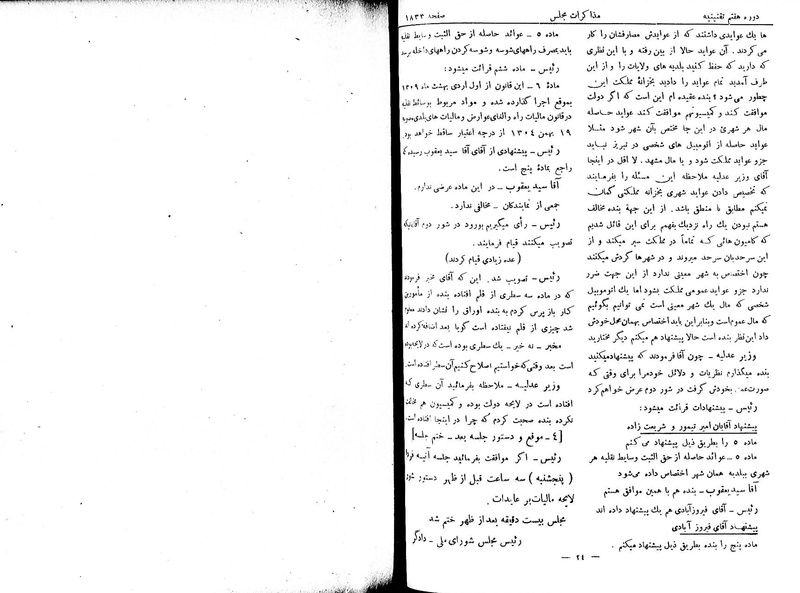 دوره هفتم تقنینیه
مذاکرات مجلس
صفحه ۱۸۳۳
ها یك عوایدی داشتند که از عوایدش مصارفشان را کار
می کردند. آن عواید حالا از بین رفته و با این نظری
که دارید که حفظ کنید بلدیه های ولایات را و از این
طرف آمدید تمام عواید را دادید بخزانه مملکت این
چطور می شود؟ بنده عقیده ام این است که اگر دولت
موافقت کند و کمیسیونهم موافقت کند عواید حاصله
مال هر شهری در این جا مختص بآن شهر شود مثلا
عواید حاصله از اتومبیل های شخصی در تبریز نباید
جزو عواید مملکت شود و یا مال مشهد. لا اقل در اینجا
آقای وزیر عدلیه ملاحظه این مسئله را بفرمایند
که تخصیص دادن عواید شهری بخزانه مملکتی گمان
نمیکنم مطابق با منطق باشد. از این جهة بنده مخالف
هستم نبودن یك راه نزدیك بفهم برای این قائل شدیم
که کامیون هائی که تماماً در مملکت سیر میکنند و از
این سرحد بان سرحد میروند و در شهرها گردش میکنند
چون اختصاص به شهر معینی ندارد از این جهت ضرر
ندارد جزو عواید عمومی مملکت بشود اما یك اتوموبیل
شخصی که مال یك شهر معینی است نمی توانیم بگوئیم
که مال عموم است و بنابراین باید اختصاص بهمان محل خودش
داد این نظر بنده است حالا پیشنهاد هم میکنم دیگر مختارید
وزیر عدلیه - چون آقا فرمودند که پیشنهاد میکنید
بنده میگذارم نظریات و دلائل خودمرا برای وقتی که
صورت عمل بخودش گرفت در شور دوم عرض خواهم کرد
رئیس - پیشنهادات قرائت میشود:
پیشنهاد آقایان امیر تیمور و شریعت زاده
ماده ۵ را بطریق ذیل پیشنهاد می کنم
ماده ۵ - عوائد حاصله از حق الثبت وسایط نقلیه هر
شهری ببلدیه همان شهر اختصاص داده می شود
آقا سید یعقوب - بنده هم با همین موافق هستم
رئیس - آقای فیروزآبادی هم یك پیشنهاد داده اند
پیشنهاد آقای فیروز آبادی
ماده پنج را بنده بطریق ذیل پیشنهاد میکنم .
ماده ۵ - عوائد حاصله از حق الثبت وسایط نقلیه
باید بمصرف راههای شوسه و شوسه کردن راههای داخله برسد
رئیس - ماده ششم قرائت میشود:
مادهٔ ۶ - این قانون از اول اردی بهشت ماه ۱۳۰۹
بموقع اجرا گذارده شده و مواد مربوط بوسائط نقلیه
در قانون مالیات راه و الغای عوارض و مالیات های بلدی مصوبه
۱۹ بهمن ۱۳۰۴ از درجه اعتبار ساقط خواهد بود.
رئیس - پیشنهادی از آقای آقا سید یعقوب رسیده که
راجع بمادهٔ پنج است.
آقا سید یعقوب - در این ماده عرضی ندارم.
جمعی از نمایندگان - مخالفی ندارد.
رئیس - رأی میگیریم بورود در شور دوم آقایانیکه
تصویب میکنند قیام فرمایند.
(عده زیادی قیام کردند)
رئیس - تصویب شد. این که آقای مخبر فرمودند
که در ماده سه سطری از قلم افتاده بنده از مأمورین
کار باز پرس کردم به بنده اوراق را نشان دادند معلوم
شد چیزی از قلم نیفتاده است گویا بعد اضافه کرده اند
مخبر - نه خیر - یك سطری بوده است که در لایحه بوده
است بعد وقتی که خواستیم اصلاح کنیم آن سطر افتاده است.
وزیر عدلیه - ملاحظه بفرمائید آن سطری که
افتاده است در لایحه دولت بوده و کمیسیون هم مخالفت
نکرده بنده صحبت کردم که چرا در اینجا افتاده است.
[۴ - موقع و دستور جلسه بعد - ختم جلسه]
رئیس - اگر موافقت بفرمائید جلسه آتیه فردا
( پنجشنبه ) سه ساعت قبل از ظهر دستور شور
لایحه مالیات بر عایدات .
مجلس بیست دقیقه بعد از ظهر ختم شد
رئیس مجلس شورای ملی - دادگر
— ۲۴ —